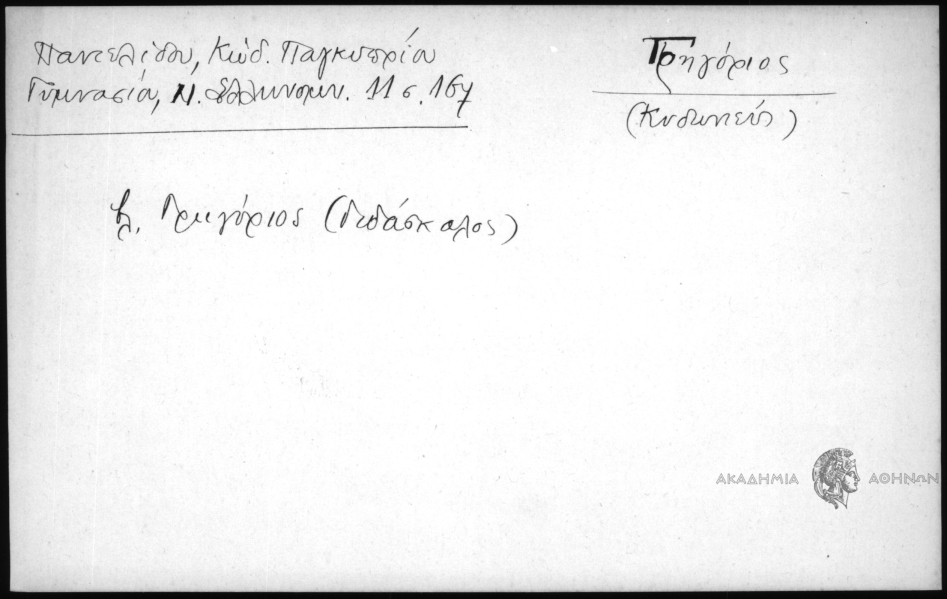 Παντελίδου, Κώδ. Παγκυπρίου
Γυμνασίου, Ν. Ελληνομν. 11 σ. 167
Γρηγόριος
(Κυδωνιεύς)
βλ. Γρηγόριος (διδάσκαλος)
ΑΚΑΔΗΜΙΑ ΑΘΗΝΩΝ